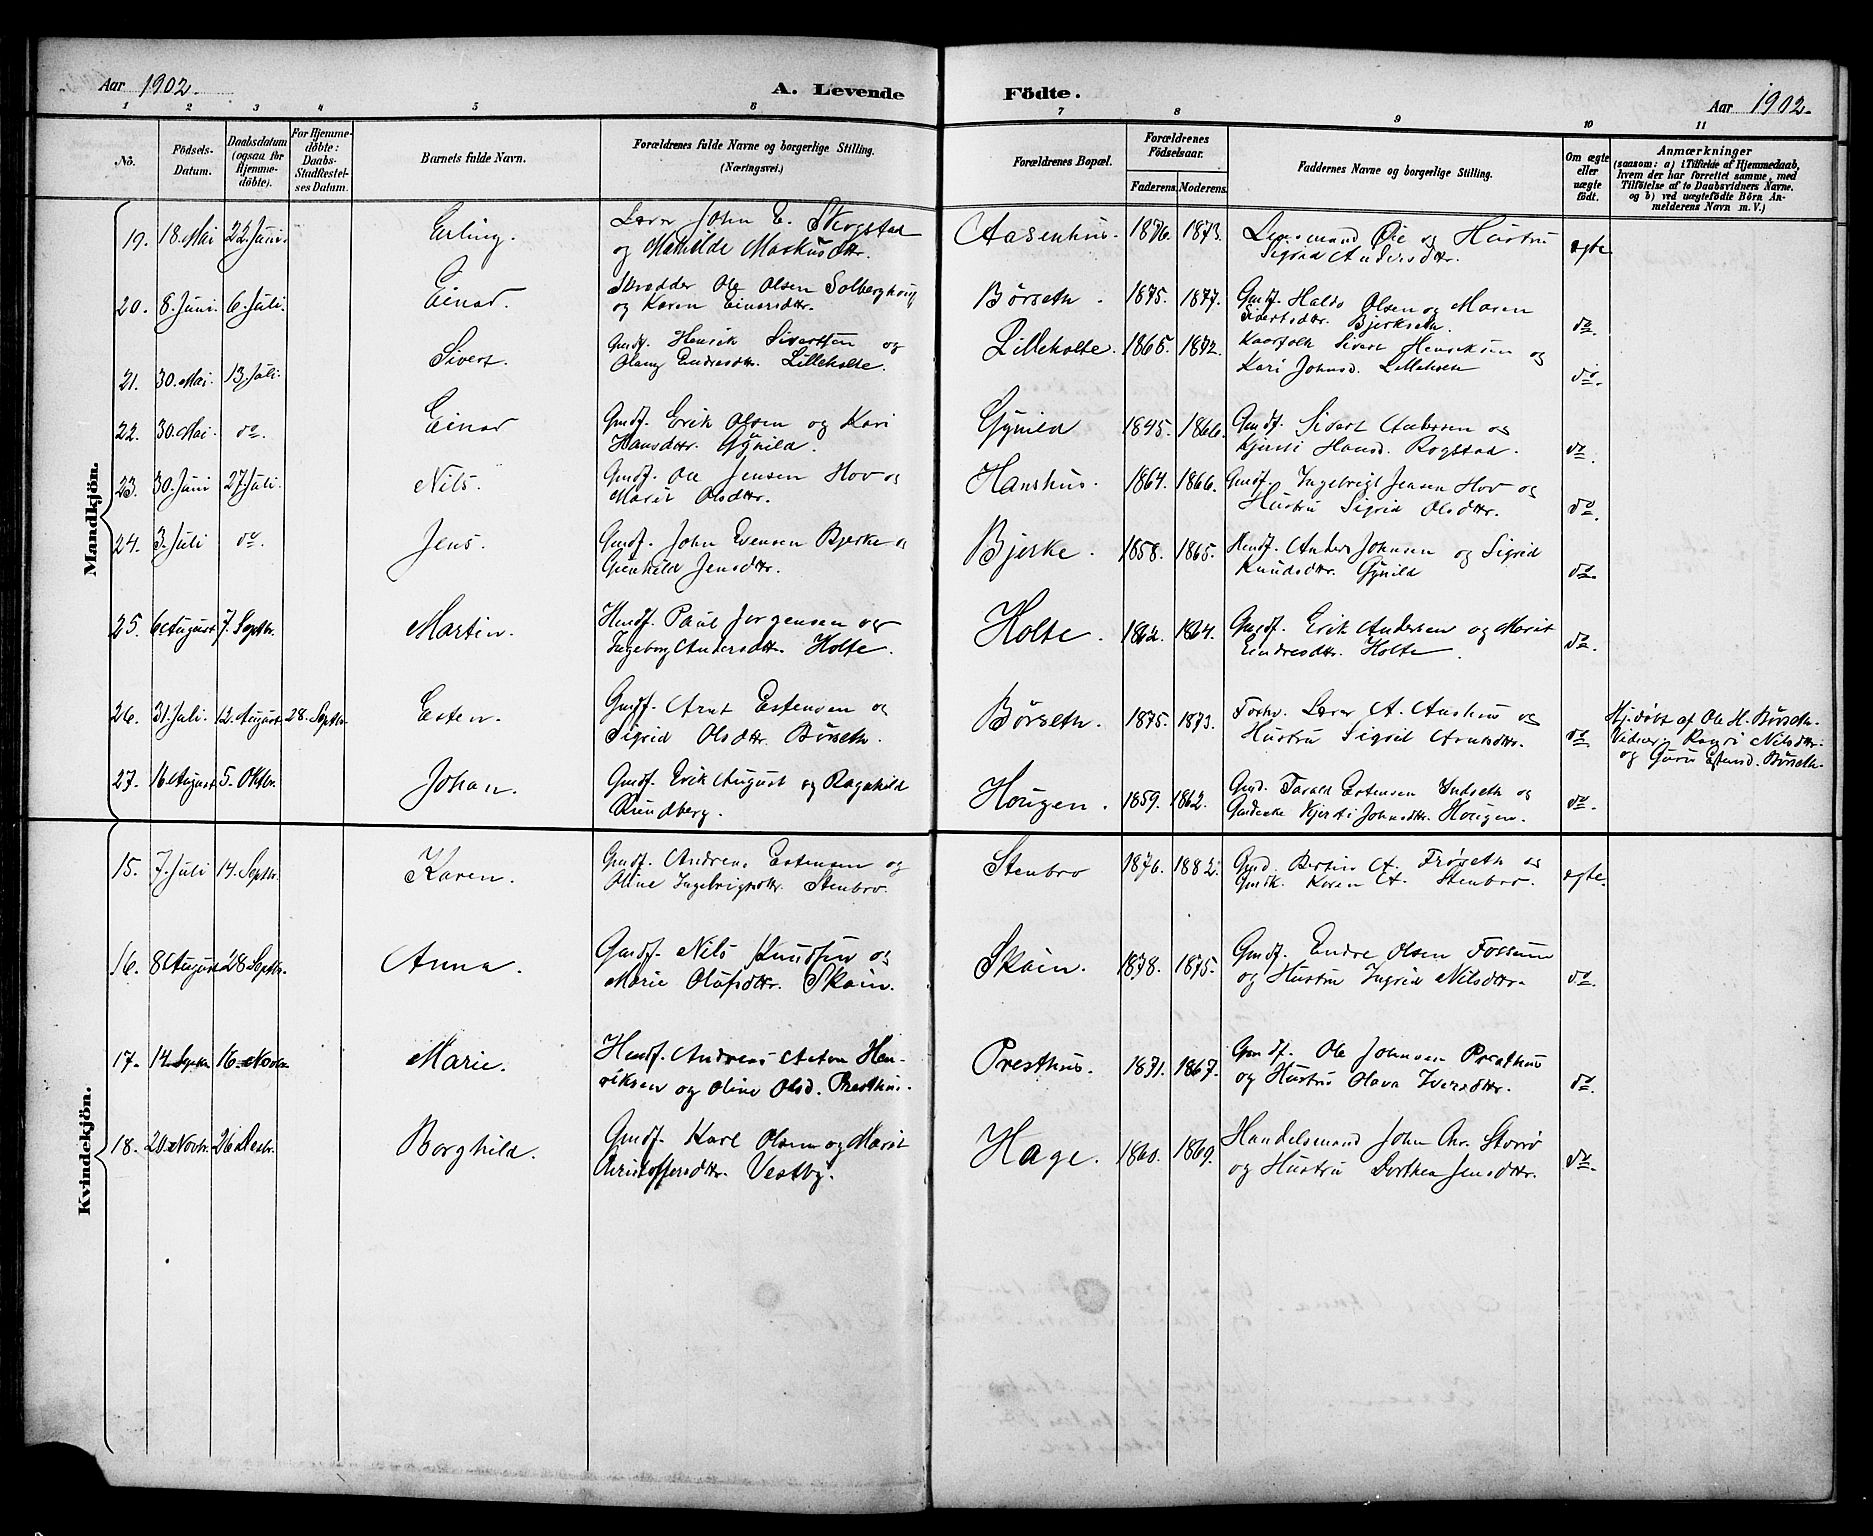 Aar 1902. A. Levende Födte. Aar 1902.
1 2 3 4 5 6 7 8 9 10 11
No. Födsels-Datum. Daabsdatum (ogsaa for Hjemmedöbte). For Hjemmedöbte: Daabs-Stadfæstelses Datum. Barnets fulde Navn. Forældrenes fulde Navne og borgerlige Stilling. (Næringsvei.) Forældrenes Bopæl. Forældrenes Födselsaar. Faderens. Moderens. Faddernes Navne og borgerlige Stilling. Om ægte eller uægte födt. Anmærkninger (saasom: a) i Tilfælde af Hjemmedaab, hvem der har forrettet samme, med Tilföielse af to Daabsvidners Navne. og b) ved uægtefödte Börn Anmelderens Navn m. V.)
Mandkjön.
19. 18. Mai 22. Juni. Erling. Lærer John E. Skogstad Aasenhus. 1876. 1873. Lensmand Øie og Hustru ægte
og Mathilde Markusdtr. Sigrid Andersdtr.
20. 8. Juni. 6. Juli. Einar. Skrædder Ole Olsen Solberghaug Børseth. 1875. 1877. Gmdf. Haldo Olsen og Maren do.
og Karen Einarsdtr. Sivertsdtr. Bjerkseth.
21. 30. Mai. 13. Juli. Sivert. Gmdf. Henrik Sivertsen og Lilleholte. 1865. 1872. Kaarfolk Sivert Henriksen og do.
Olaug Endresdtr. Lilleholte. Kari Johnsd. Lilleholte
22. 30. Mai. do. Einar Gmdf. Erik Olsen og Kari Gynild 1845. 1866. Gmdf. Sivert Andersen og do.
Hansdtr. Gynild. Kjersti Hansd. Rogstad.
23. 30. Juni 27. Juli. Nils. Gmdf. Ole Jensen Hov og Hanshus. 1864. 1866. Gmdf. Ingebrigt Jensen Hov og do.
Marit Olsdtr. Hustru Sigrid Olsdtr.
24. 3. Juli do. Jens. Gmdf. John Evensen Bjerke og Bjerke. 1858. 1865. Hmdf. Anders Johnsen og Sigrid do.
Gunhild Jensdtr. Knudsdtr. Gynild
25. 6 August 7. Septbr. Martin. Hmdf. Paul Jørgensen og Holte. 1862. 1864. Gmdf. Erik Andersen og Marit do.
Ingeborg Andersdtr. Holte. Endresdtr. Holte.
26. 31. Juli. 12. August 28. Septbr. Esten. Gmdf. Arnt Estensen og Børseth. 1875. 1873. Forhv. Lærer A. Aashus og do. Hj.døbt af Ole H. Børseth.
Sigrid Olsdtr. Børseth. Hustru Sigrid Arntsdtr. Vidner: Nilsdtr.
og Guru Estensd. Børseth.
27. 16 August 5. Oktbr. Johan. Gmdf. Erik August og Ragnhild Hougen. 1859. 1862. Gmd. Tarald Estensen Indseth og do.
Rundberg. Gmdenke Kjersti Johnsdtr. Hougen.
Kvindekjön.
15. 7. Juli 14. Septbr. Karen. Gmdf. Andreas Estensen og Stenbro 1876. 1882. Gmd. A. Frøseth og ægte.
Oline Ingebrigtsdtr. Stenbro. Gmdk. Karen A. Stenbro.
16. 8 August 28 Septbr. Anna. Gmdf. Nils Knudsen og Skoin. 1878. 1875. Gmdf. Endre Olsen Fossum do.
Marie Olufsdtr. Skoin. og Hustru Ingrid Nilsdtr.
17. 14. Septbr 16. Novbr. Marie. Hmdf. Andreas Anton Hen- Presthus. 1871. 1867. Gmdf. Ole Johnsen Presthus do.
riksen og Oline Olsd. Presthus. og Hustru Olava Iversdtr.
18. 20. Novbr. 26. Decbr. Borghild. Gmdf. Karl Olsen og Marit Hage. 1860. 1869. Handelsmand John Chr. Storrø do.
Christoffersdtr. Vestby. og Hustru Dorthea Jensdtr.